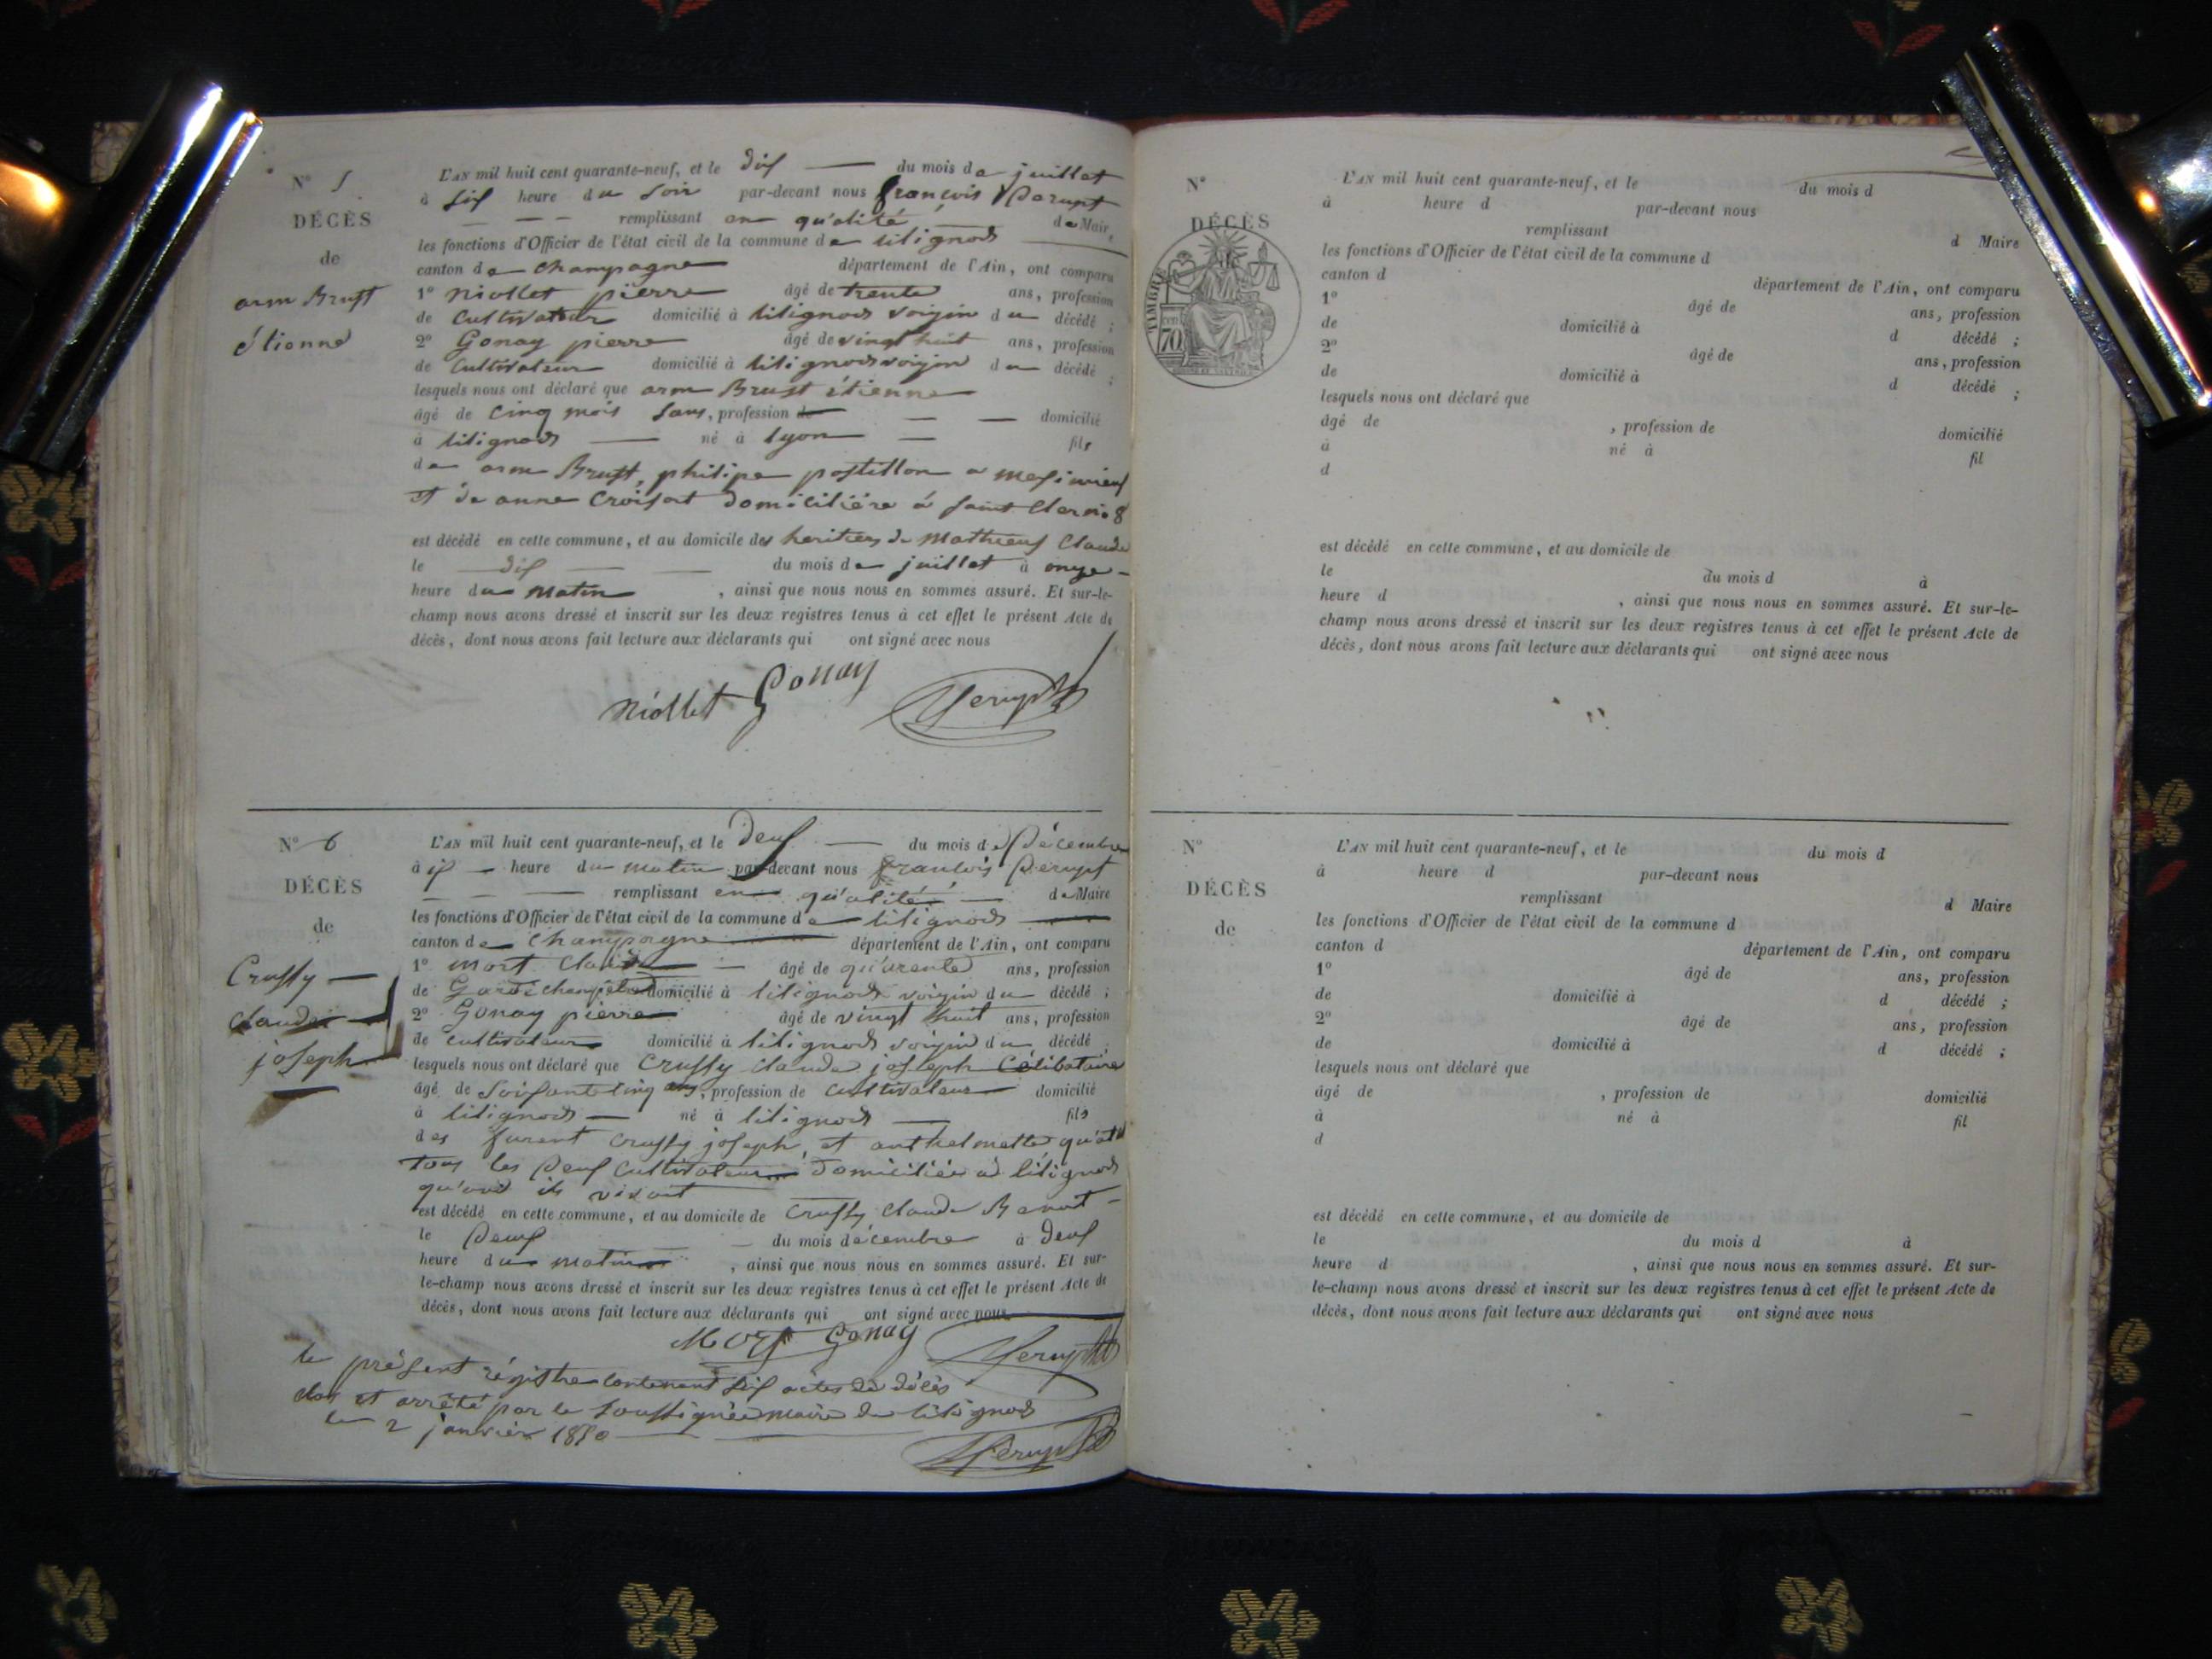 N° 5
DÉCÈS
de
arm Brust
étienne
L'AN mil huit cent quarante-neuf, et le dix du mois de juillet
à six heure du soir par-devant nous françois Perupt
remplissant en qu'alité de Maire
les fonctions d'Officier de l'état civil de la commune de lilignod
canton de Champagne département de l'Ain, ont comparu
1° Niollet pierre âgé de trente ans, profession
de Cultivateur domicilié à lilignod voizin du décédé ;
2° Gonay pierre âgé de vingt huit ans, profession
de Cultivateur domicilié à lilignod voizin du décédé ;
lesquels nous ont déclaré que arm Brust étienne
âgé de Cinq mois sans, profession de domicilié
à lilignod né à lyon fils
de arm Brust, philipe postillon a
et de anne domiciliére à saint
est décédé en cette commune, et au domicile des heritiers de Mathieux Claude
le dix du mois de juillet à onze
heure du matin , ainsi que nous nous en sommes assuré. Et sur-le-
champ nous avons dressé et inscrit sur les deux registres tenus à cet effet le présent Acte de
décès, dont nous avons fait lecture aux déclarants qui ont signé avec nous
Niollet Gonay Perupt
N° 6
DÉCÈS
de
Crussy
Claude
joseph
L'AN mil huit cent quarante-neuf, et le deux du mois de Décembre
à heure du matin par-devant nous françois Perupt
remplissant en qu'alité de Maire
les fonctions d'Officier de l'état civil de la commune de lilignod
canton de Champagne département de l'Ain, ont comparu
1° Mort Claude âgé de qu'arente ans, profession
de Garde champêtre domicilié à lilignod voizin du décédé ;
2° Gonay pierre âgé de vingt huit ans, profession
de cultivateur domicilié à lilignod voizin du décédé
lesquels nous ont déclaré que Crussy Claude joseph Célibataire
âgé de Soixante cinq ans, profession de Cultivateur domicilié
à lilignod né à lilignod fils
des furent Crussy joseph, et
tous les deux Cultivateur domiciliée à lilignod
qu'and ils vivoit
est décédé en cette commune, et au domicile de Crussy Claude Benoit
le Deux du mois décembre à deux
heure du matin , ainsi que nous nous en sommes assuré. Et sur-
le-champ nous avons dressé et inscrit sur les deux registres tenus à cet effet le présent Acte de
décès, dont nous avons fait lecture aux déclarants qui ont signé avec nous
Mort Gonay Perupt
le présent régistre contenant six actes de décès
clos et arrêté par le soussignée maire de lilignod
le 2 janvier 1850
Perupt
N°
DÉCÈS
TIMBRE
70
L'AN mil huit cent quarante-neuf, et le du mois d
à heure d par-devant nous
remplissant d Maire
les fonctions d'Officier de l'état civil de la commune d
canton d département de l'Ain, ont comparu
1° âgé de ans, profession
de domicilié à d décédé ;
2° âgé de ans, profession
de domicilié à d décédé ;
lesquels nous ont déclaré que
âgé de , profession de domicilié
à né à fil
d
est décédé en cette commune, et au domicile de
le du mois d à
heure d , ainsi que nous nous en sommes assuré. Et sur-le-
champ nous avons dressé et inscrit sur les deux registres tenus à cet effet le présent Acte de
décès, dont nous avons fait lecture aux déclarants qui ont signé avec nous
N°
DÉCÈS
de
L'AN mil huit cent quarante-neuf, et le du mois d
à heure d par-devant nous
remplissant d Maire
les fonctions d'Officier de l'état civil de la commune d
canton d département de l'Ain, ont comparu
1° âgé de ans, profession
de domicilié à d décédé ;
2° âgé de ans, profession
de domicilié à d décédé ;
lesquels nous ont déclaré que
âgé de , profession de domicilié
à né à fil
d
est décédé en cette commune, et au domicile de
le du mois d à
heure d , ainsi que nous nous en sommes assuré. Et sur-
le-champ nous avons dressé et inscrit sur les deux registres tenus à cet effet le présent Acte de
décès, dont nous avons fait lecture aux déclarants qui ont signé avec nous